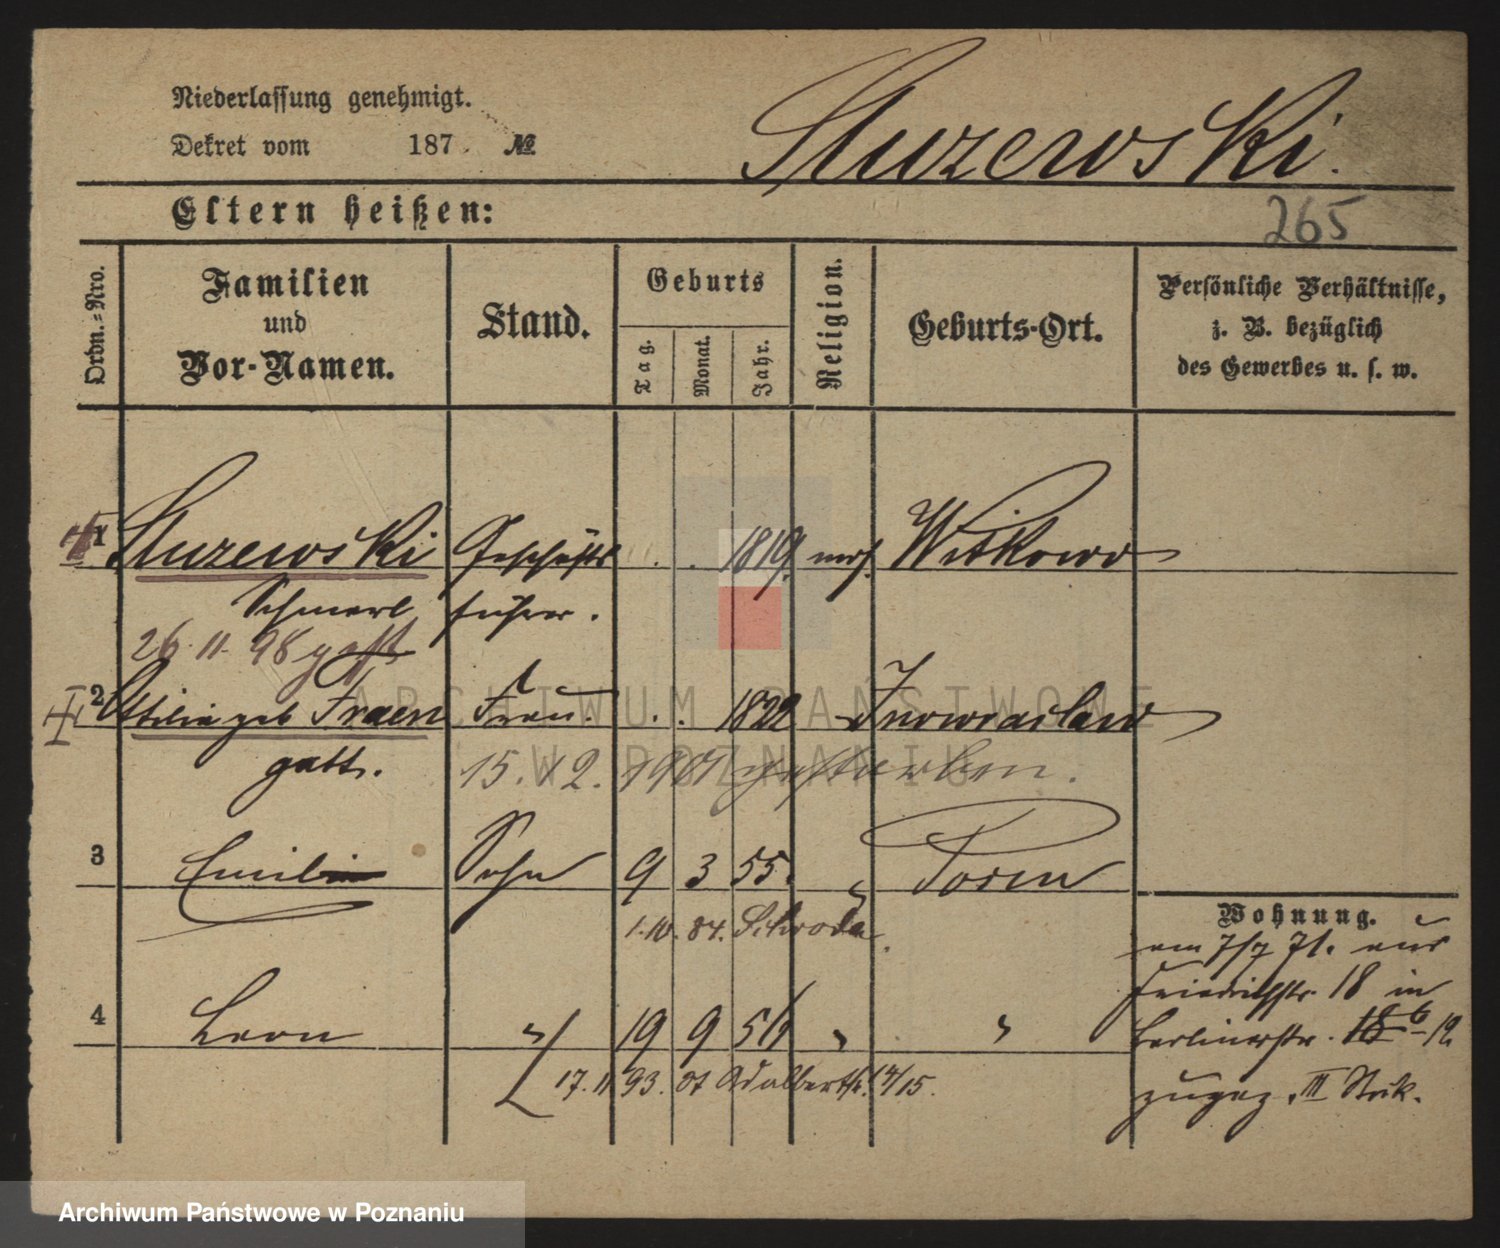 Niederlassung genehmigt.
Dekret vom 187 №
Sluzewski.
Eltern heißen:
265
Ordn.-Nro.
Familien und Vor-Namen.
Stand.
Geburts
Tag.
Monat.
Jahr.
Religion.
Geburts-Ort.
Persönliche Verhältnisse,
z. B. bezüglich
des Gewerbes u. s. w.
1 Sluzewski Geschäfts 1819 mos. Witkowo
Schmerl führer.
26. 11. 98 gest
2 Ottilie geb Fraen Frau. 1822 Inowraclaw
gest. 15. 12. 1901 gestorben.
3 Emil Sohn 9 3 55. " Posen
1. 10. 84. Schroda.
4 Leon " 19 9 56 " "
17. 11 93. St Adalbertstr. 14/15.
Wohnung.
am 7/9 71. aus
Friedrichstr. 18 in
Berlinerstr. 12
zugez. III Stck.
ARCHIWUM PAŃSTWOWE
W POZNANIU
Archiwum Państwowe w Poznaniu